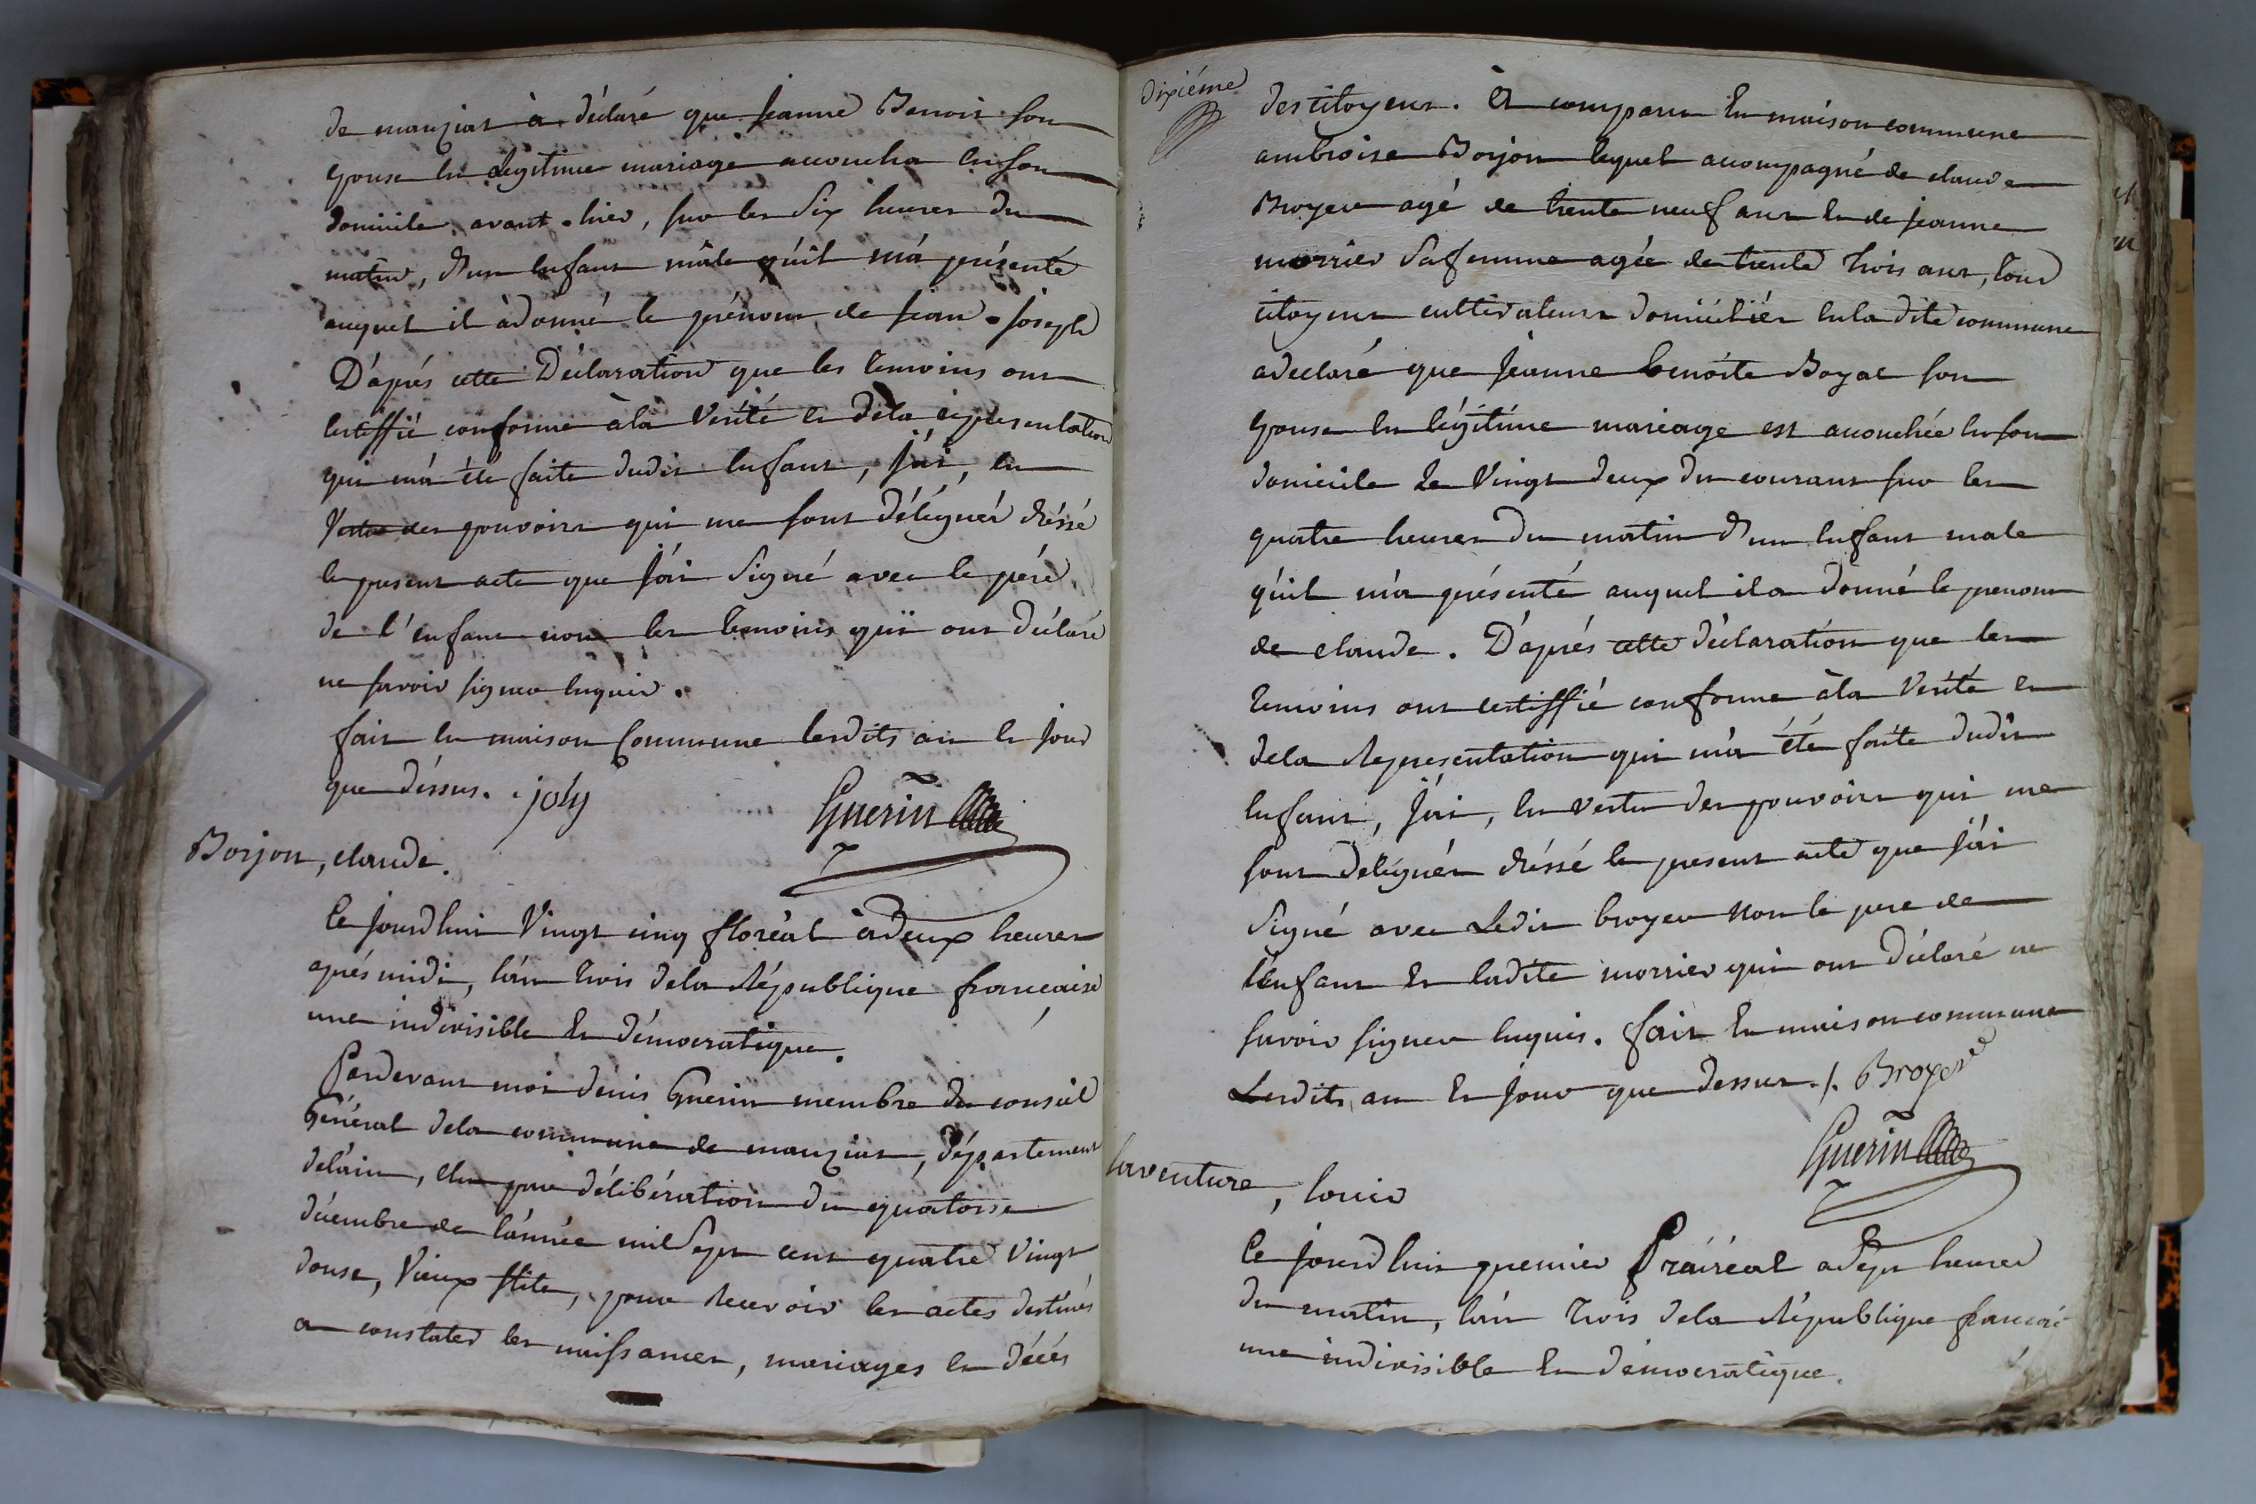 de manziat à déclaré que jeanne Benoit son
épouse en légitime mariage accoucha en son
domicile avant-hier, sur les six heures du
matin, d'un enfant mâle qu'il m'a présenté
auquel il à donné le prénom de jean-joseph
D'aprés cette Déclaration que les temoins ont
certiffié conforme à la Vérité et de la représentation
qui m'a été faite dudit enfant, j'ai, en
Vertu des pouvoirs qui me sont délégués dréssé
le present acte que j'ai Signé avec le pére
de l'enfant non les temoins qui ont déclaré
ne savoir signer enquis.
fait en maison Commune lesdits an et jour
que déssus. joly
Guerin
Borjon, claude.
Ce jourd'hui Vingt cinq floréal à deux heures
aprés midi, l'an trois de la République française
une indivisible et démocratique.
Pardevant moi denis Guerin membre du conseil
Général de la commune de manziat, département
de l'ain, élu par délibération du quatorse
décembre de l'année mil Sept cent quatre Vingt
douse, Vieux stile, pour recevoir les actes destinés
a constater les naissances, mariages et décés
dixiéme
des citoyens. Et comparu en maison commune
ambroise Borjon lequel acompagné de claude
Broyer agé de trente neuf ans et de jeanne
morrier Sa femme agée de trente trois ans, tous
citoyens cultivateurs domiciliés en la dite commune
a declaré que jeanne benoite Boyat son
épouse en légitime mariage est acouchée en son
domicile Le Vingt deux du courant sur les
quatre heures du matin d'un enfant male
qu'il m'a présenté auquel il a donné le prenom
de claude. D'aprés cette déclaration que les
temoins ont certiffié conforme à la Vérité et
de la Représentation qui m'a été faite dudit
enfant, j'ai, en vertu des pouvoirs qui me
sont delégués dréssé le present acte que j'ai
Signé avec Ledit broyer non le pere de
l'enfant et ladite morrier qui ont déclaré ne
savoir signer enquis. fait en maison commune
Lesdits an et jour que dessus ./. Broyer
Guerin
laventure, louis
Ce jourd'hui premier Prairéal a Sept heures
du matin, l'an trois de la République francai
une indivisible et démocratique.